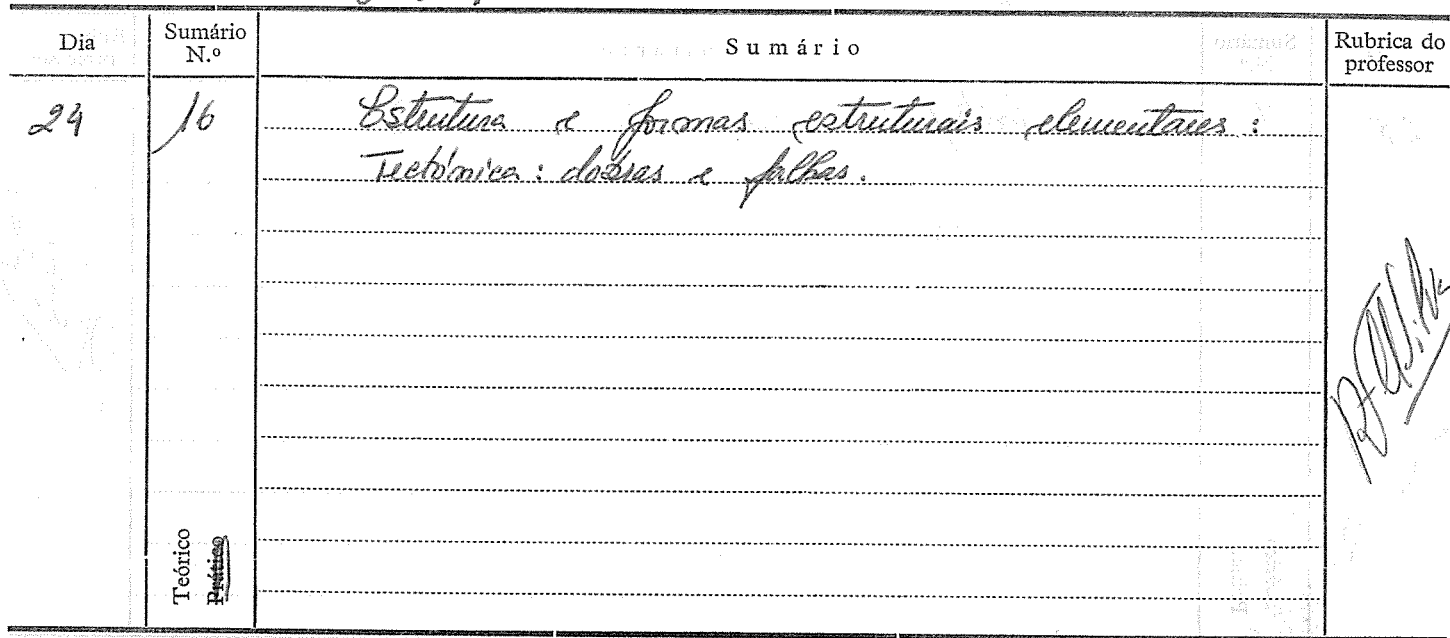 Dia
Sumário N.º
Sumário
Rubrica do professor
24
16
Estrutura e formas estruturais elementares :
Tectónica : dobras e falhas .
Teórico
Prático